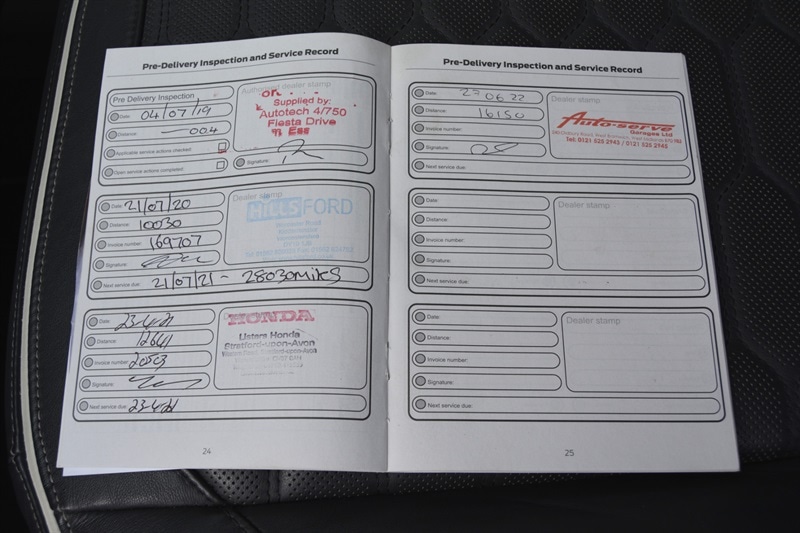 Pre-Delivery Inspection and Service Record
Pre Delivery Inspection
Date: 04/07/19
Distance: 004
Applicable service actions checked:
Open service actions completed:
Authorised dealer stamp
Supplied by:
Autotech 4/750
Fiesta Drive
Signature:
Date: 21/07/20
Distance: 10030
Invoice number: 169707
Signature:
Next service due: 21/07/21 - 28030 miles
Dealer stamp
HILLS FORD
Date:
Distance: 12641
Invoice number:
Signature:
Next service due:
HONDA
Listers Honda
Stratford-upon-Avon
24
Pre-Delivery Inspection and Service Record
Date: 27 06 22
Distance: 16150
Invoice number:
Signature:
Next service due:
Dealer stamp
Auto-serve
Garages Ltd
Tel: 0121 525 2945 / 0121 525 2943
Date:
Distance:
Invoice number:
Signature:
Next service due:
Dealer stamp
Date:
Distance:
Invoice number:
Signature:
Next service due:
Dealer stamp
25